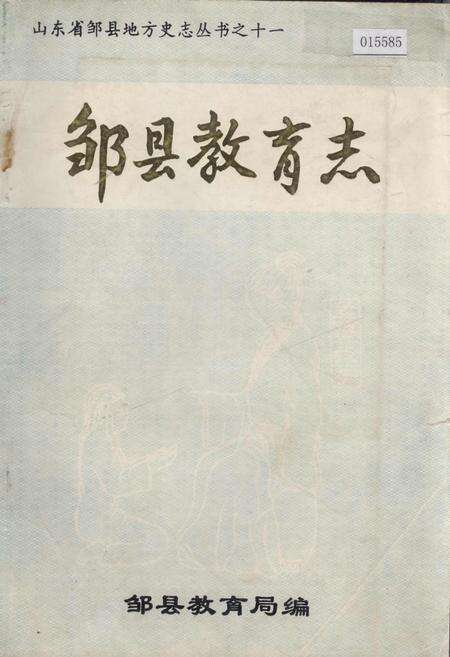 山东省邹县地方史志丛书之十一
015585
邹县教育志
邹县教育局编